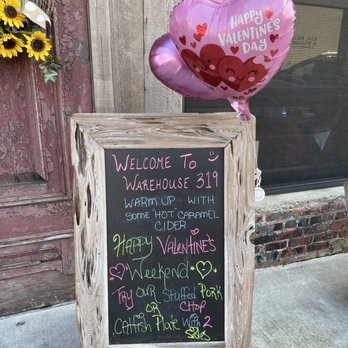 HAPPY
VALENTINE'S
DAY
WELCOME TO
WAREHOUSE 319
WARM UP WITH
SOME HOT CARAMEL
CIDER
HAPPY VALENTINE'S
WEEKEND
TRY OUR STUFFED PORK
CHOP
OR
CATFISH PLATE WITH 2
SIDES